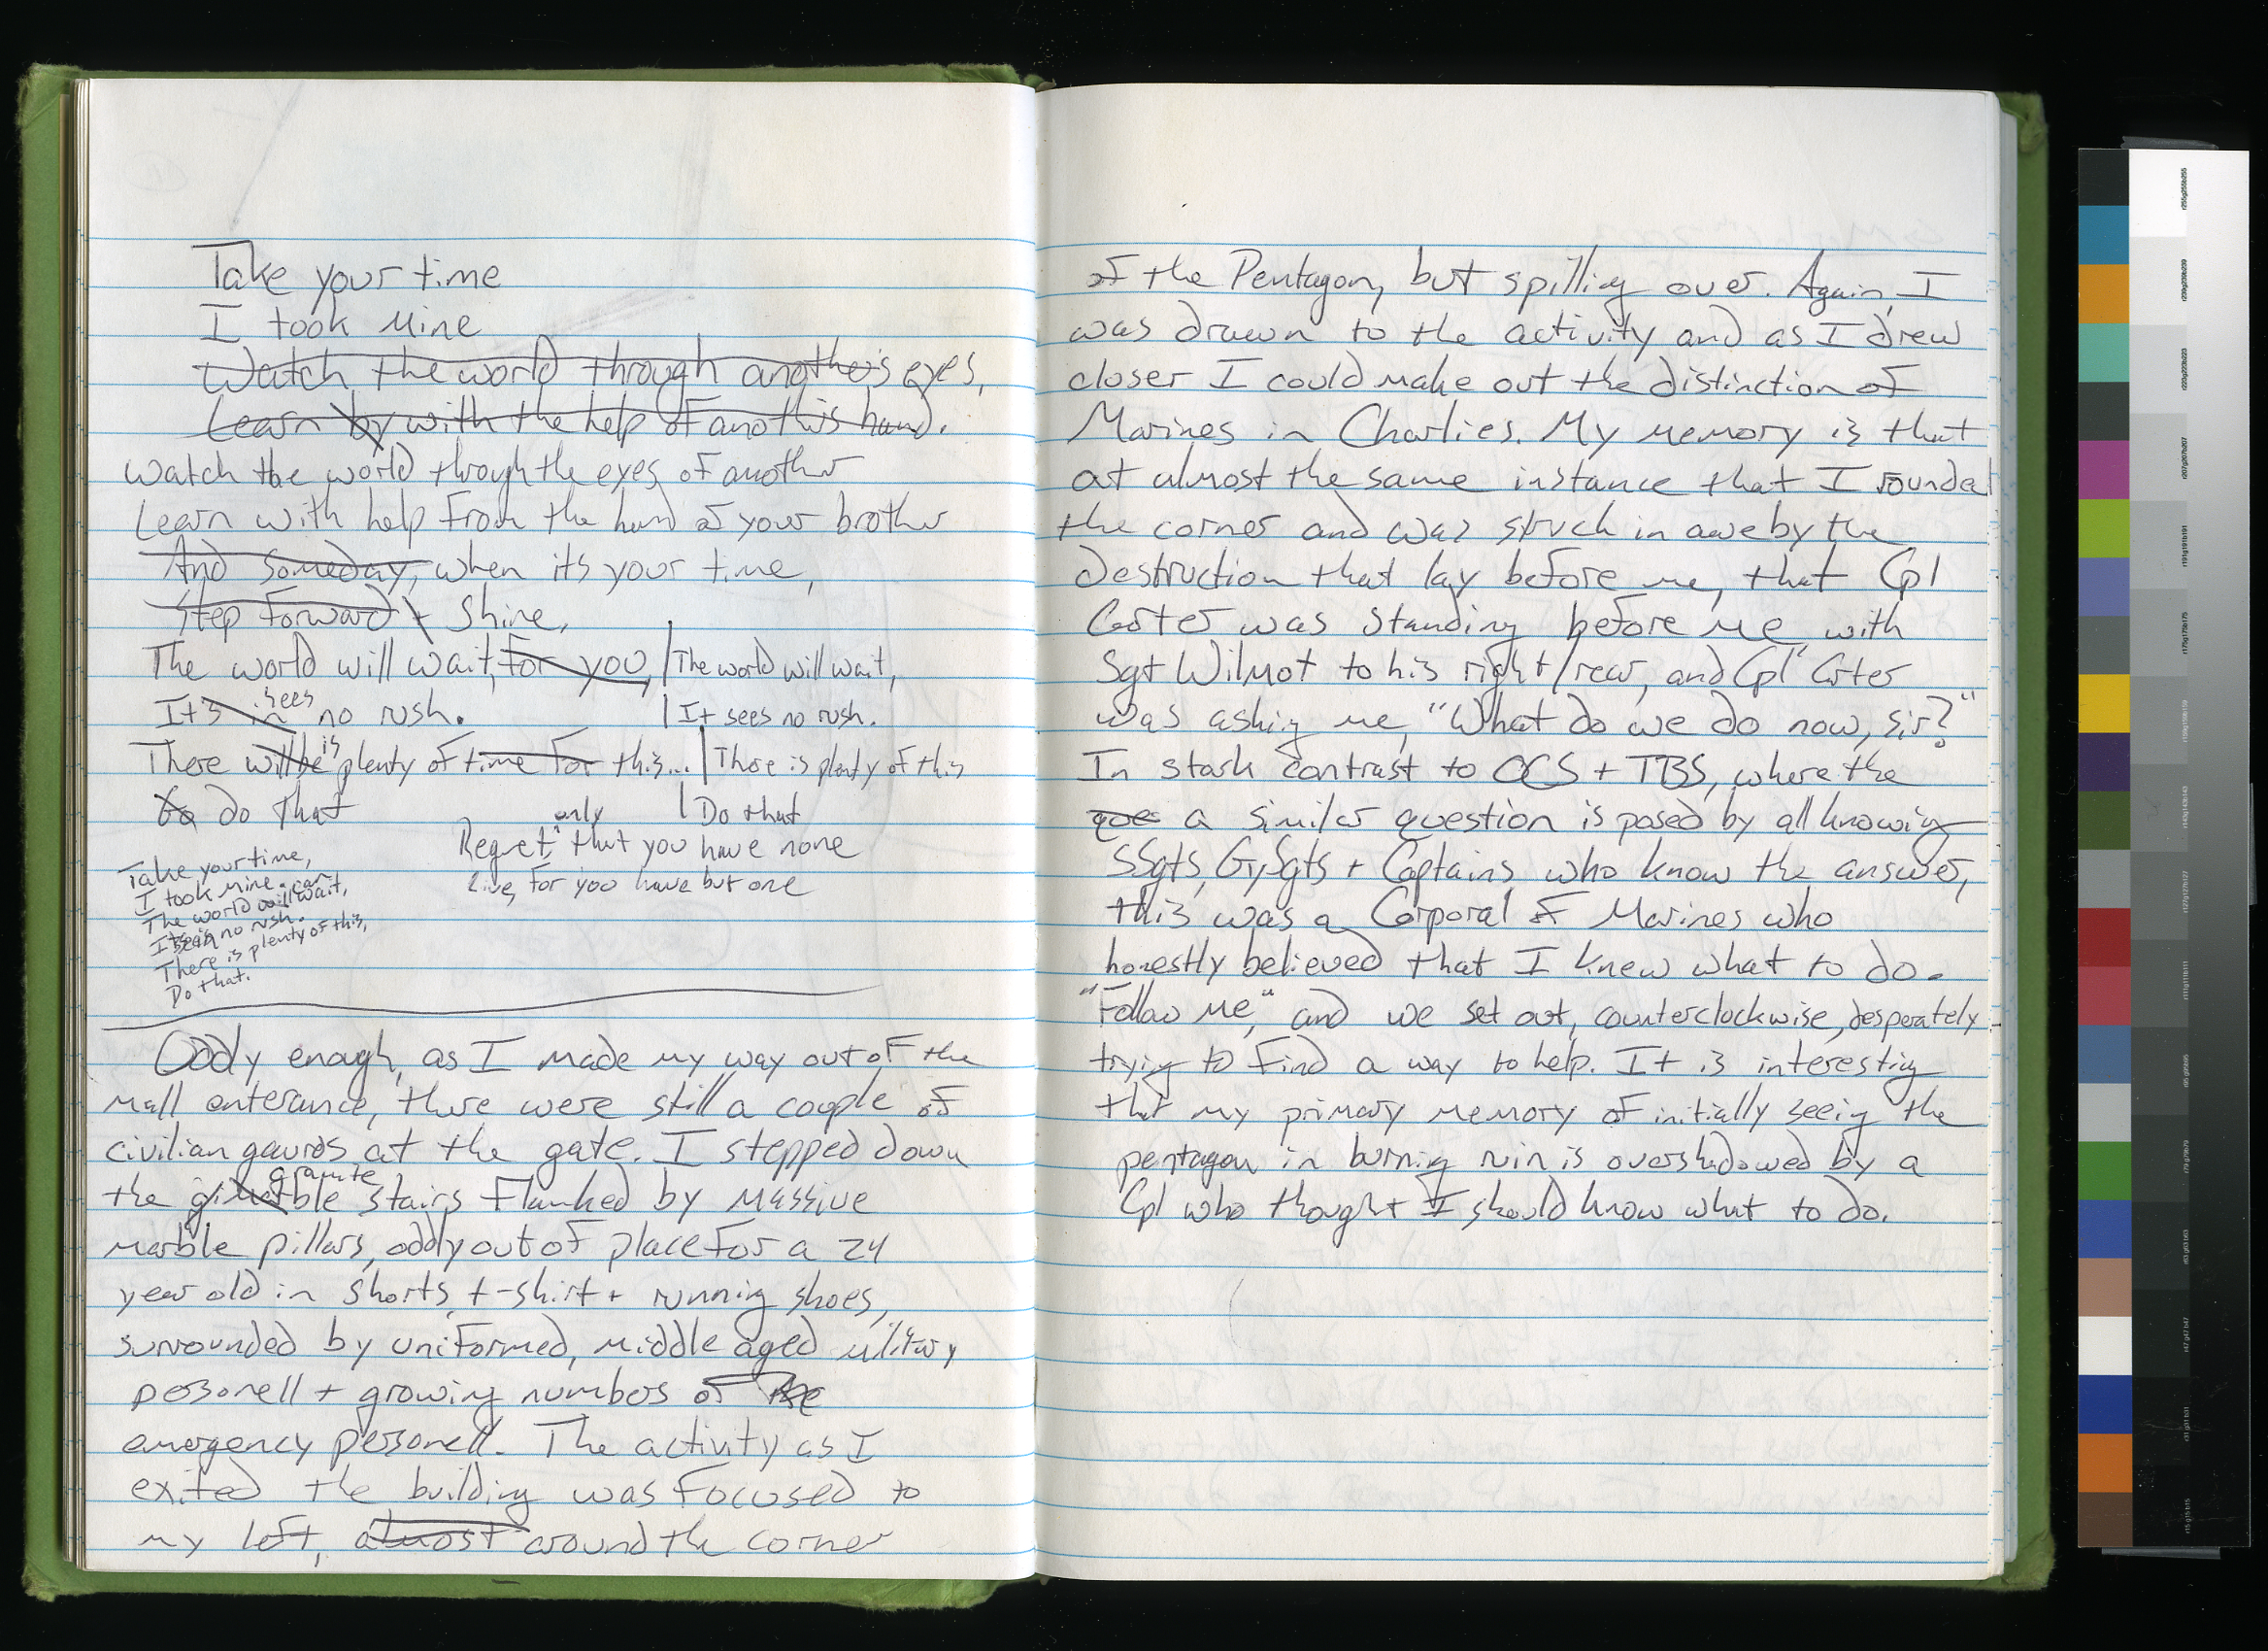 Take your time
I took mine
Watch the world through another's eyes,
Learn by with the help of anothis hand.
Watch the world through the eyes of another
Learn with help from the hand of your brother
And someday, when its your time,
Step forward + shine,
The world will wait, for you,
It's in sees no rush.
There will be is plenty of time for this...
to do that
The world will wait,
It sees no rush.
There is plenty of this
Do that
Regret, only that you have none
Live, for you have but one
Take your time,
I took mine.
The world will can wait,
It no rush.
There is plenty of this,
Do that.
Oddly enough, as I made my way out of the
mall enterance, there were still a couple of
civilian gaurds at the gate. I stepped down
the granite stairs flanked by massive
marble pillars, oddly out of place for a 24
year old in shorts, t-shirt + running shoes,
surrounded by uniformed, middle aged military
personell + growing numbers of the
emergency personell. The activity as I
exited the building was focused to
my left, almost around the corner
of the Pentagon, but spilling over. Again, I
was drawn to the activity and as I drew
closer I could make out the distinction of
Marines in Charlies. My memory is that
at almost the same instance that I rounded
the corner and was struck in awe by the
destruction that lay before me, that Cpl
Carter was standing before me, with
Sgt Wilmot to his right/rear, and Cpl Carter
was asking me, "What do we do now, sir?"
In stark contrast to OCS + TBS, where the
que a similar question is posed by all knowing
SSgts, GySgts + Captains who know the answer,
this was a Corporal of Marines who
honestly believed that I knew what to do.
"Follow me," and we set out, counterclockwise, desperately
trying to find a way to help. It is interesting
that my primary memory of initially seeing the
pentagon in burning ruin is overshadowed by a
Cpl who thought I should know what to do.